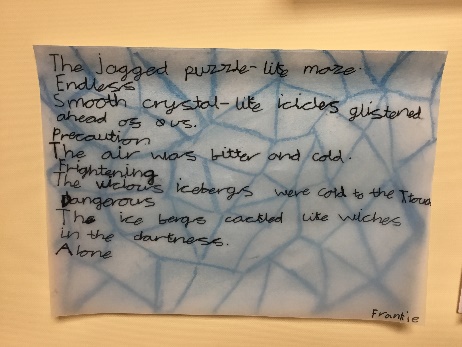 The jagged puzzle-like maze.
Endless
Smooth crystal-like icicles glistened
ahead os ous.
Precaution
The air was bitter and cold.
Frightening
The vicious icebergs were cold to the Touch
Dangerous
The ice bergs cackled like wiches
in the dartness.
Alone
Frankie